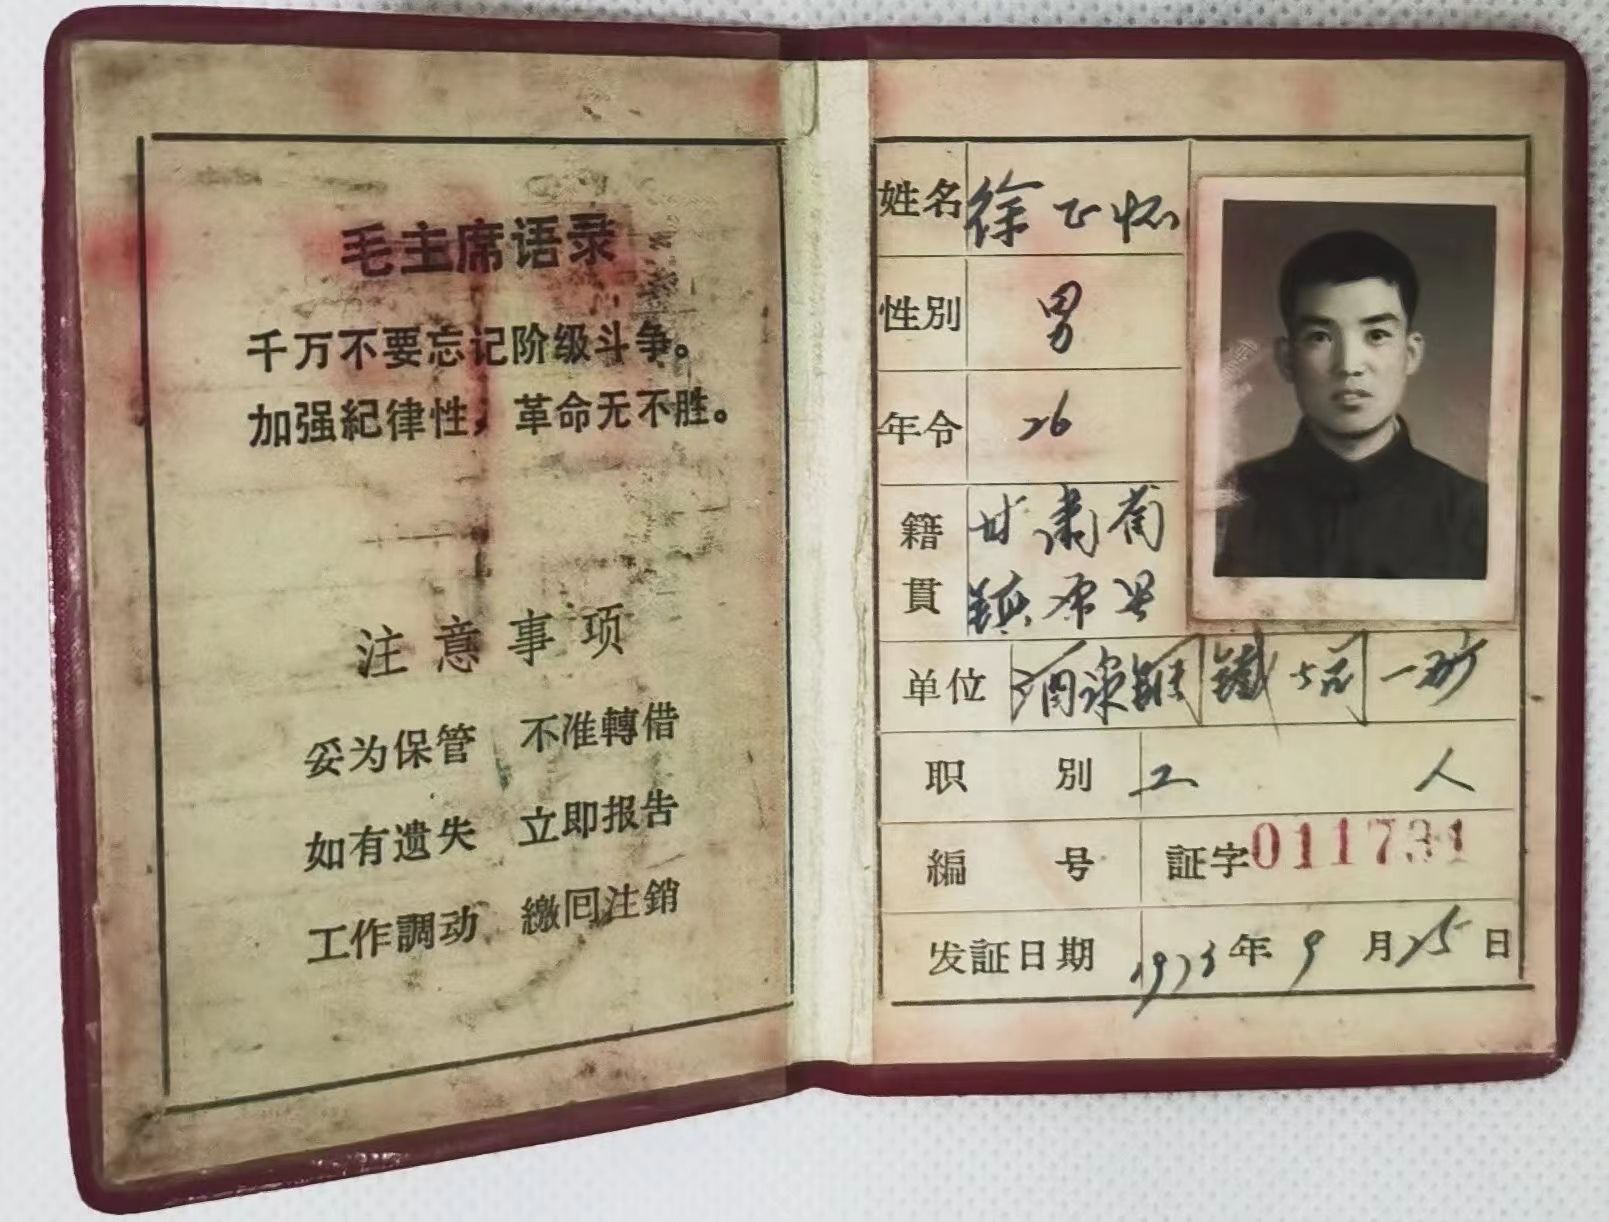 毛主席语录
千万不要忘记阶级斗争。
加强紀律性，革命无不胜。
注意事项
妥为保管 不准轉借
如有遗失 立即报告
工作調动 繳回注銷
姓名 徐正怀
性別 男
年令 26
籍 甘肃
貫 镇原县
单位 酒泉鋼鐵公司一矿
职別 工人
編号 証字011731
发証日期 1973年9月25日